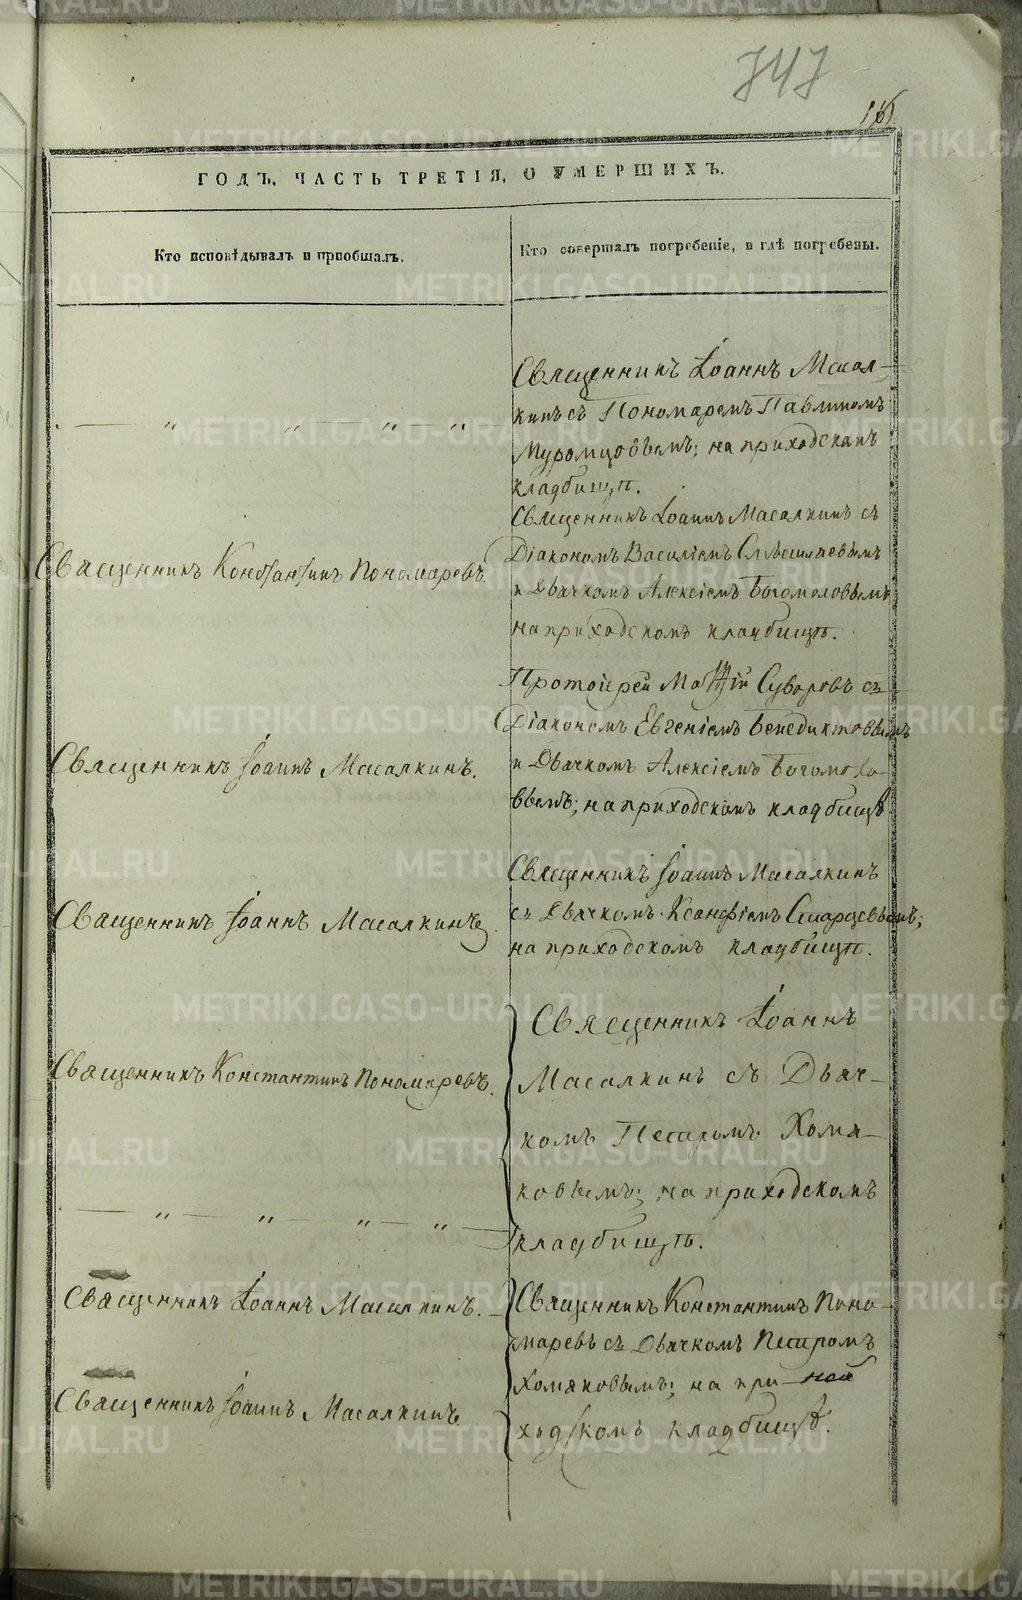 747
ГОДЪ, ЧАСТЬ ТРЕТІЯ, О УМЕРШИХЪ.
Кто исповѣдывалъ и пріобщалъ.
Кто совершалъ погребеніе, и гдѣ погребены.
— „ — „ — „ — „ —
Священникъ Іоаннъ Масал-
кинъ съ Пономаремъ Павлиномъ
Муромцовымъ; на приходскомъ
кладбищѣ.
Священникъ Константинъ Пономаревъ.
Священникъ Іоаннъ Масалкинъ съ
Діакономъ Василіемъ
и Дьячкомъ Алексіемъ Богомоловымъ
на приходскомъ кладбищѣ.
Священникъ Іоаннъ Масалкинъ.
Протоіерей Матѳій Суворовъ съ
Діакономъ Евгеніемъ Бенедиктовымъ
и Дьячкомъ Алексіемъ Богомоло-
вымъ; на приходскомъ кладбищѣ.
Священникъ Іоаннъ Масалкинъ.
Священникъ Іоаннъ Масалкинъ
съ Дьячкомъ Ксанфіемъ
на приходскомъ кладбищѣ.
Священникъ Константинъ Пономаревъ.
— „ — „ — „ — „ —
Священникъ Іоаннъ
Масалкинъ съ Дьяч-
комъ Петромъ Хомя-
ковымъ; на приходскомъ
кладбищѣ.
Священникъ Іоаннъ Масалкинъ.
Священникъ Іоаннъ Масалкинъ
Священникъ Константинъ Поно-
маревъ съ Дьячкомъ Петромъ
Хомяковымъ; на при-
ходскомъ кладбищѣ.
METRIKI.GASO-URAL.RU